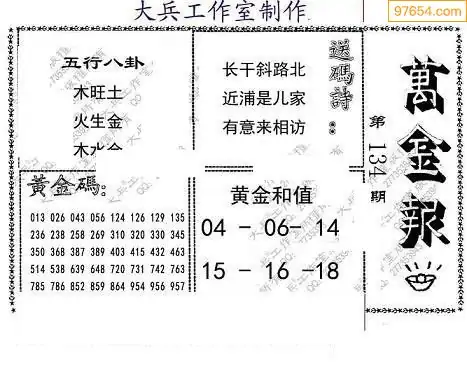 大兵工作室制作
97654.com
萬金報
第134期
送碼詩:
长干斜路北
近浦是儿家
有意来相访
五行八卦
木旺土
火生金
木水金
黄金碼:
013 026 043 056 124 126 129 135
236 238 258 269 310 320 330 345
350 368 387 389 403 415 432 463
514 538 639 648 720 731 742 763
785 786 852 859 864 954 956 957
黄金和值
04 - 06- 14
15 - 16 -18